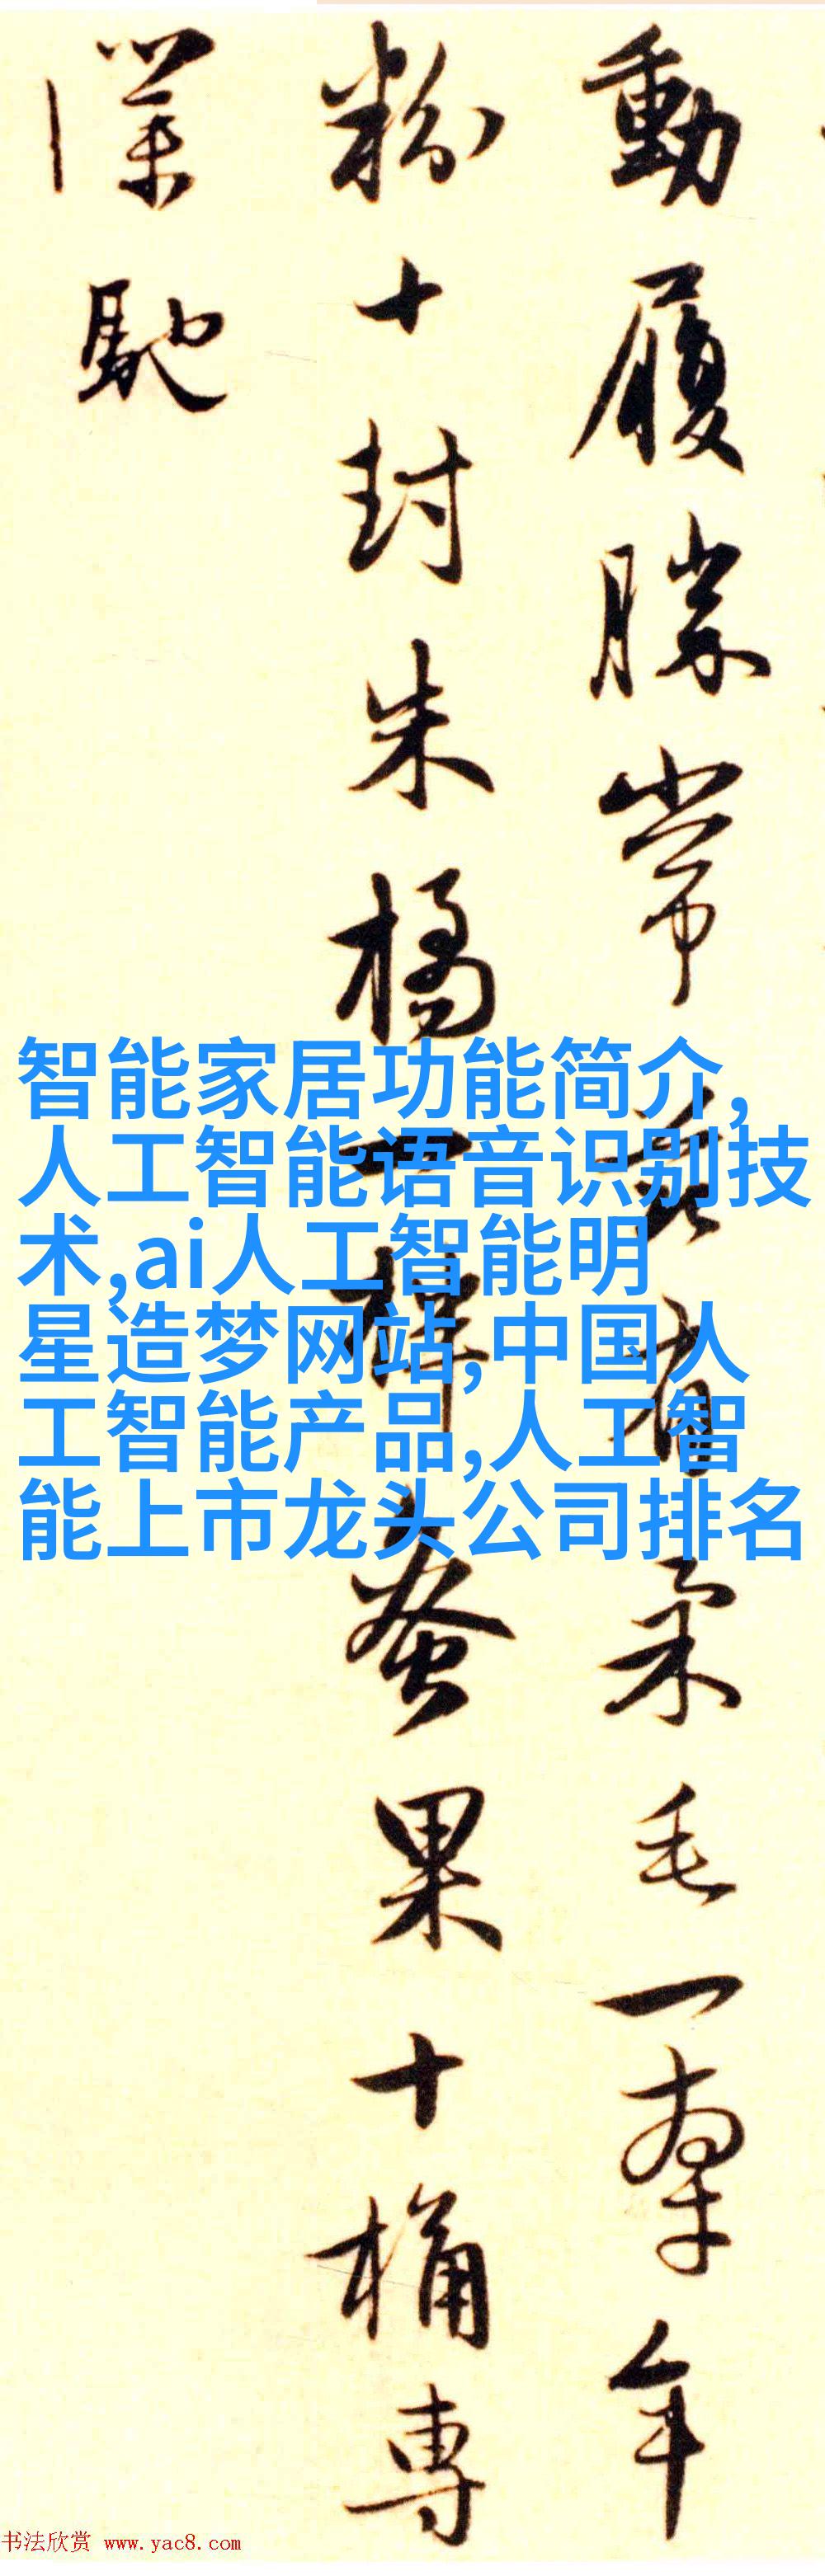 動履勝常兹有柔毛一牽年
粉十封朱橘一樿蚕果十桶專
僕馳
智能家居功能简介,
人工智能语音识别技
术,ai人工智能明
星造梦网站,中国人
工智能产品,人工智
能上市龙头公司排名
书法欣赏 www.yac8.com